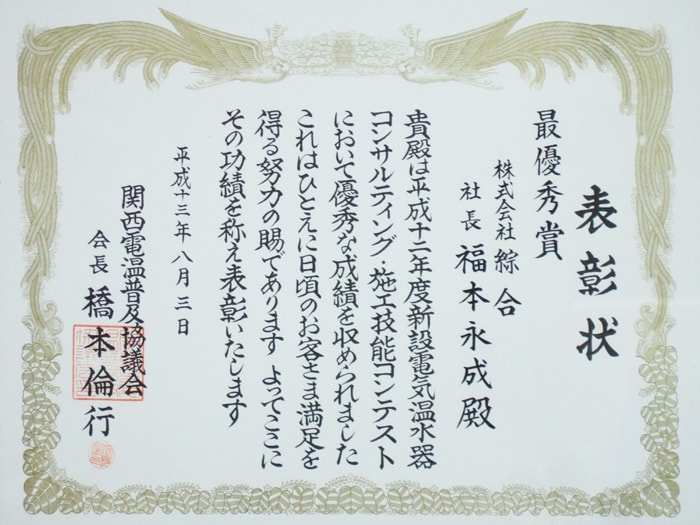 表彰状
最優秀賞
株式会社 綜合
社長 福本永成殿
貴殿は平成十二年度新設電気温水器
コンサルティング・施工技能コンテスト
において優秀な成績を収められました
これはひとえに日頃のお客さま満足を
得る努力の賜であります よってここに
その功績を称え表彰いたします
平成十三年八月三日
関西電温普及協議会
会長 橋本倫行